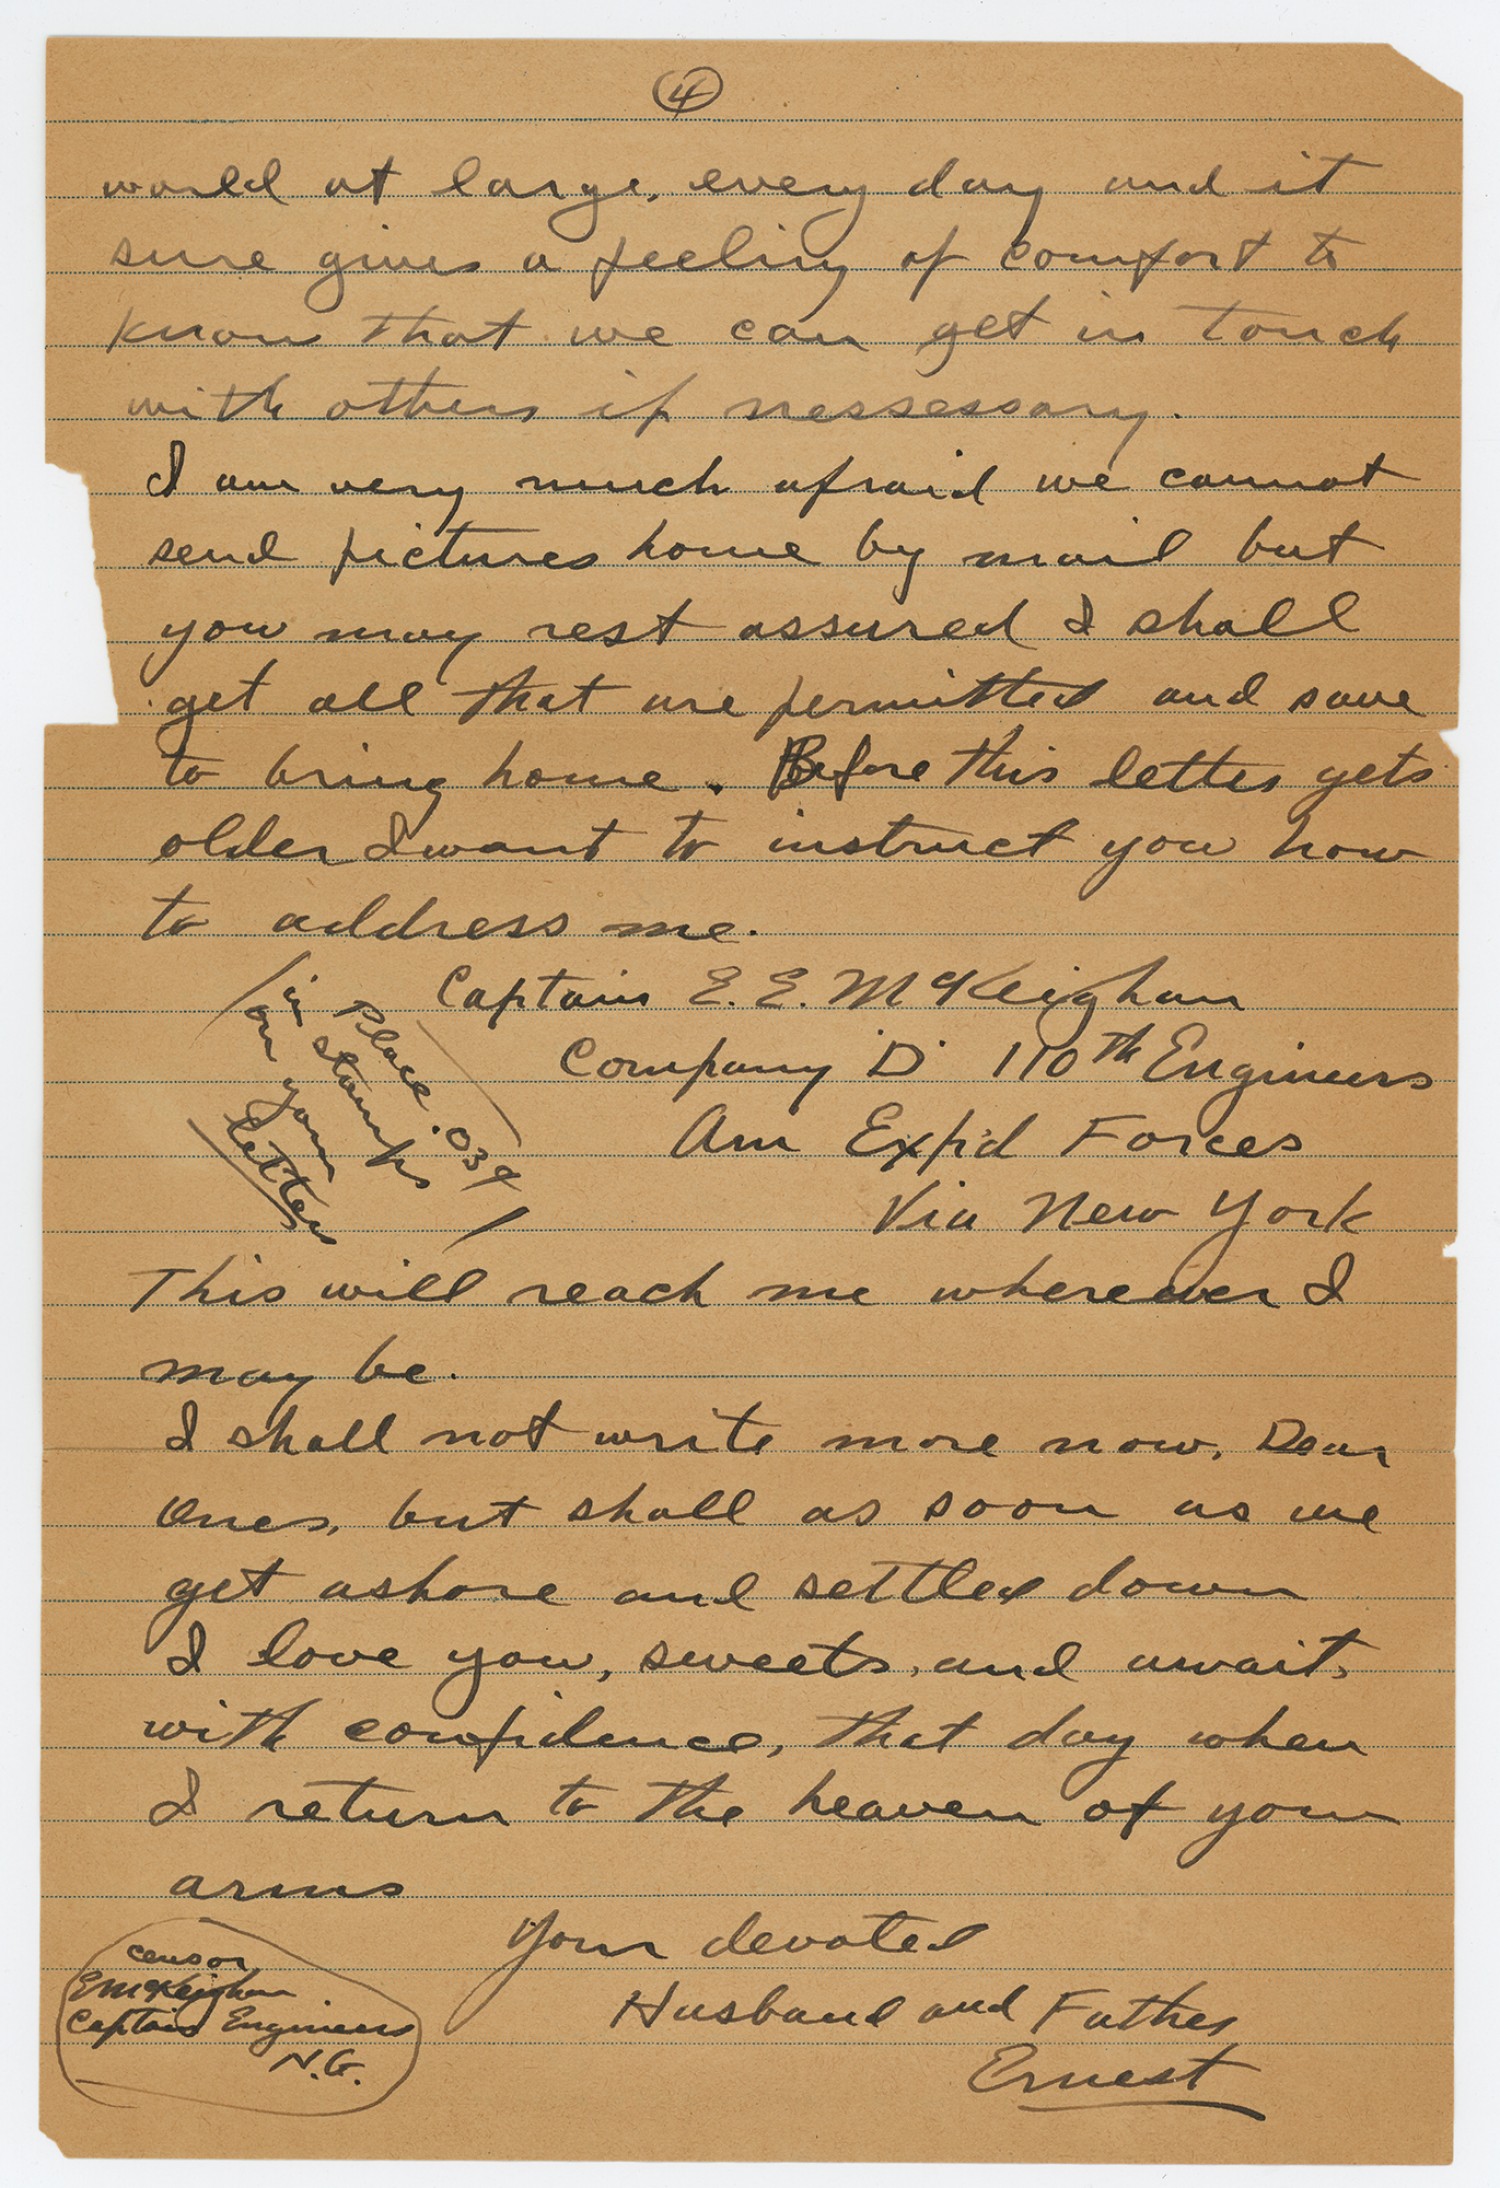 4
world at large, every day and it
sure gives a feeling of comfort to
know that we can get in touch
with others if nessessary.
I am very much afraid we cannot
send pictures home by mail but
you may rest assured I shall
get all that are permitted and save
to bring home. Before this letter gets
older I want to instruct you how
to address me.
Captain E. E. McKeighan
Company "D" 110th Engineers
Am Exp'd Forces
Via New York
Place .03¢
in stamps
on your
letters
This will reach me wherever I
may be.
I shall not write more now, Dear
Ones, but shall as soon as we
get ashore and settled down
I love you, sweets, and await,
with confidence, that day when
I return to the heaven of your
arms
Your devoted
Husband and Father
Ernest
censor
E McKeighan
Captain Engineers
N.G.